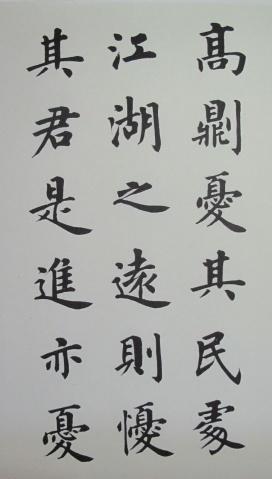 髙𠟭憂其民處
江湖之遠則懮
其君是進亦憂